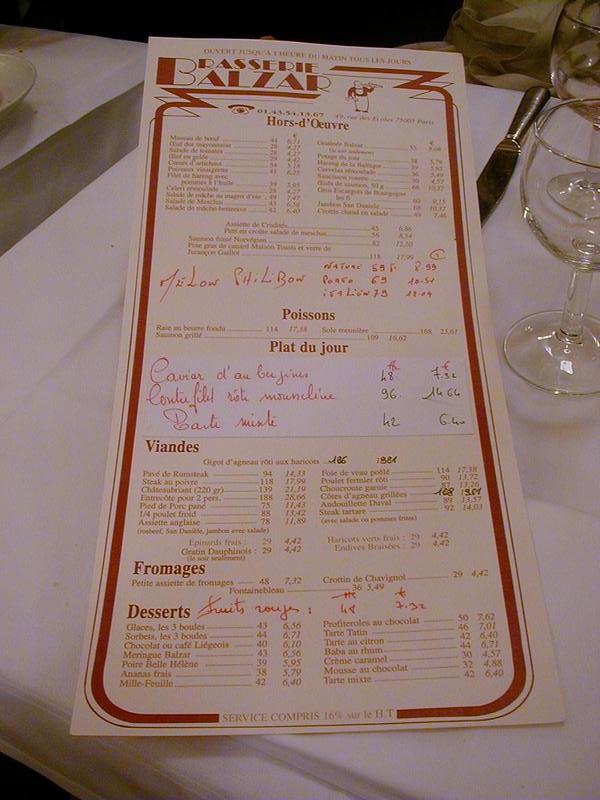 OUVERT JUSQU'À 1 HEURE DU MATIN TOUS LES JOURS
BRASSERIE
BALZAR
01.43.54.13.67
49, rue des Ecoles 75005 Paris
Hors-d'Œuvre
€
Museau de bœuf 44 6,71
Œuf dur mayonnaise 28 4,27
Salade de tomates 28 4,27
Œuf en gelée 29 4,42
Cœurs d'artichaut 34 5,18
Poireaux vinaigrette 41 6,25
Filet de hareng avec
pommes à l'huile 39 5,95
Céleri rémoulade 28 4,27
Salade de mâche ou magret d'oie 49 7,47
Salade de Mesclun 43 6,56
Salade de mâche-betterave 42 6,40
Gratinée Balzar 55
(le soir seulement)
Potage du jour 38 5,79
Hareng de la Baltique 39 5,95
Cervelas rémoulade 36 5,49
Saucisson rosette 30 4,57
Œufs de saumon, 50 g 68 10,37
Gros Escargots de Bourgogne
les 6 60 9,15
Jambon San Daniele 68 10,37
Crottin chaud en salade 49 7,46
Assiette de Crudités 45 6,86
Paté en croûte salade de mesclun 56 8,54
Saumon fumé Norvégien 82 12,50
Foie gras de canard Maison Toasts et verre de
Jurançon Guillot 118 17,99
MELON PHILIBON
NATURE 59 F. 8.99
PORTO 69 10.51
ITALIEN 79 12.04
Poissons
Raie au beurre fondu 114 17,38 Sole meunière 168 25,61
Saumon grillé 109 16,62
Plat du jour
Caviar d'aubergines 48. 7.32
Contrefilet rôti mousseline 96. 14.64
Barte mixte 42 6.40
Viandes
Gigot d'agneau rôti aux haricots
Pavé de Rumsteak 94 14,33
Steak au poivre 118 17,99
Châteaubriant (220 gr) 139 21,19
Entrecôte pour 2 pers. 188 28,66
Pied de Porc pané 75 11,43
1/4 poulet froid 88 13,42
Assiette anglaise 78 11,89
(rosbeef, San Danièle, jambon avec salade)
Foie de veau poêlé 114 17,38
Poulet fermier rôti 90 13,72
Choucroute garnie 87 13,26
Côtes d'agneau grillées
Andouillette Duval 89 13,57
Steak tartare 92 14,03
(avec salade ou pommes frites)
Epinards frais : 29 4,42
Gratin Dauphinois : 29 4,42
(le soir seulement)
Haricots verts frais : 29 4,42
Endives Braisées : 29 4,42
Fromages
Petite assiette de fromages 48 7,32 Crottin de Chavignol 29 4,42
Fontainebleau 36 5,49
Desserts
Fruits rouges : 48 7.32
Glaces, les 3 boules 43 6,56
Sorbets, les 3 boules 44 6,71
Chocolat ou café Liégeois 40 6,10
Meringue Balzar 43 6,56
Poire Belle Hélène 39 5,95
Ananas frais 38 5,79
Mille-Feuille 42 6,40
Profiteroles au chocolat 50 7,62
Tarte Tatin 46 7,01
Tarte au citron 42 6,40
Baba au rhum 44 6,71
Crème caramel 30 4,57
Mousse au chocolat 32 4,88
Tarte mixte 42 6,40
SERVICE COMPRIS 16% sur le H.T